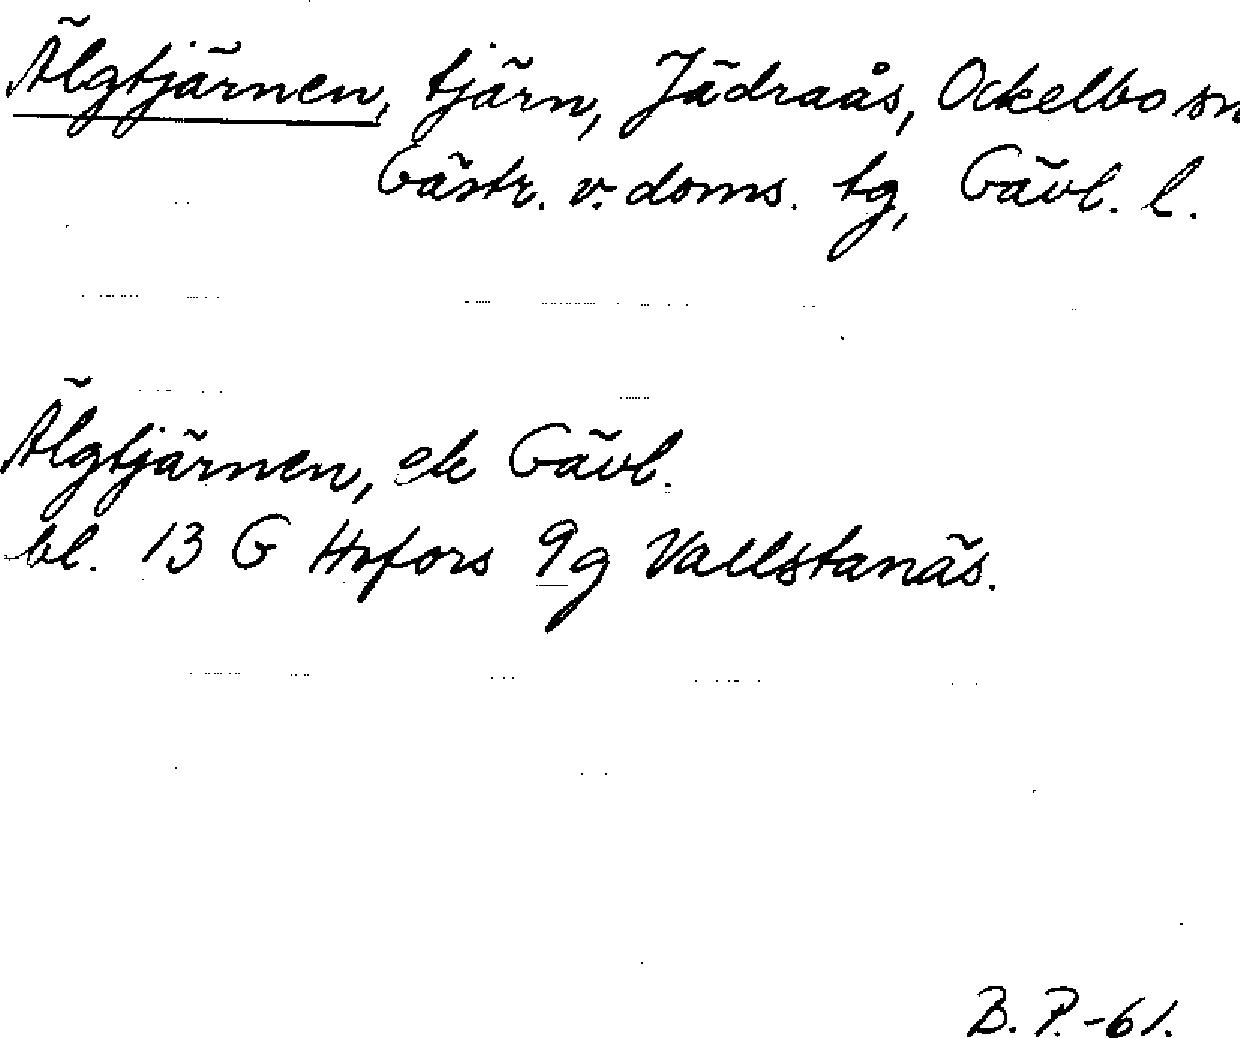 Älgtjärnen, tjärn, Jädraås, Ockelbo sn
Gästr. v. doms. tg, Gävl. l.
Älgtjärnen, ek Gävl.
bl. 13 G Hofors 9g Vallstanäs.
B. P. -61.